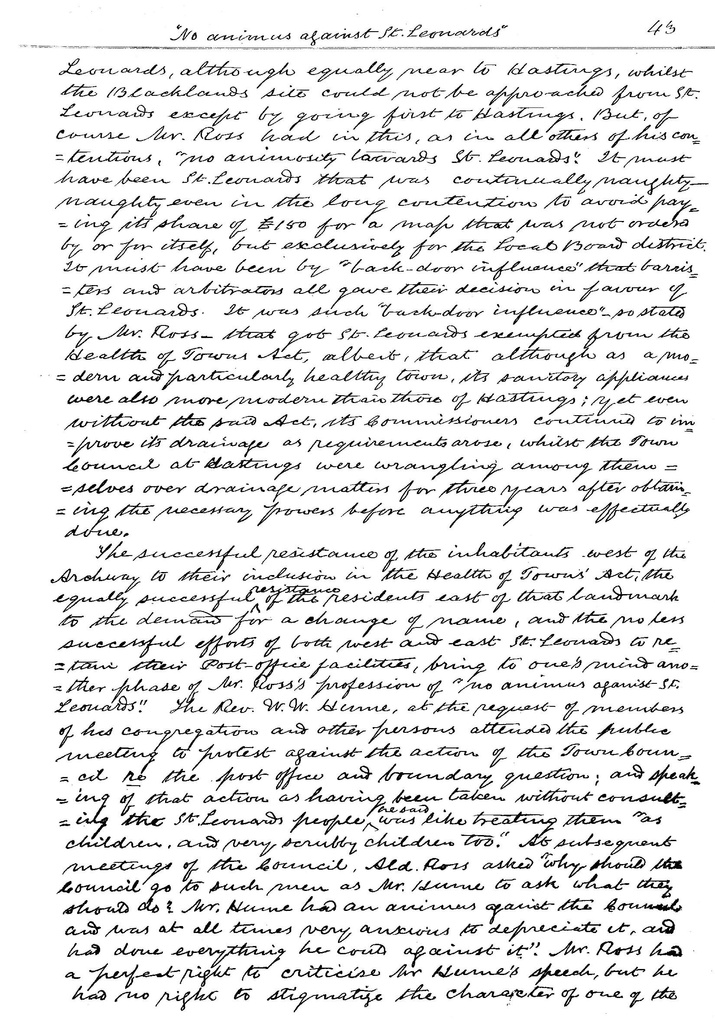 "No animus against St. Leonards" 43
Leonards, although equally near to Hastings, whilst
the Blacklands site could not be approached from St.
Leonards except by going first to Hastings. But, of
course Mr. Ross had in this, as in all others of his con=
=tentions, "no animosity towards St. Leonads". It must
have been St. Leonards that was continually naughty—
naughty even in the long contention to avoid pay=
=ing its share of £150 for a map that was not ordered
by or for itself, but exclusively for the Local Board district.
It must have been by "back-door influence" that barris=
=ters and arbitrators all gave their decision in favour of
St. Leonards. It was such "back door influence"—so stated
by Mr. Ross—that got St. Leonards exempted from the
Health of Towns Act, albeit, that although as a mo=
=dern and particularly healthy town, its sanitary appliances
were also more modern than those of Hastings; yet even
without the said Act, its Commissioners continued to im=
=prove its drainage as requirements arose, whilst the Town
Council at Hastings were wrangling among them=
=selves over drainage matters for three years after obtain=
=ing the necessary powers before anything was effectually
done.
The successful resistance of the inhabitants west of the
Archway to their inclusion in the Health of Towns' Act; the
equally successful resistance of the residents east of that landmark
to the demand for a change of name, and the no less
successful efforts of both west and east St. Leonards to re=
=tain their Post-office facilities, bring to one's mind ano=
=ther phase of Mr. Ross's profession of "no animus against St.
Leonards". The Rev. W. W. Hume, at the request of members
of his congregation and other persons attended the public
meeting to protest against the action of the Town Coun=
=cil re the post office and boundary question; and speak=
=ing of that action as having been taken without consult=
=ing the St. Leonards people, he said, was like treating them "as
children, and very scrubby children too." At subsequent
meetings of the Council, Ald. Ross asked "why should the
Council go to such men as Mr. Hume to ask what they
should do? Mr. Hume had an animus against the Council
and was at all times very anxious to depreciate it, and
had done everything he could against it". Mr. Ross had
a perfect right to criticise Mr Hume's speech, but he
had no right to stigmatize the character of one of the